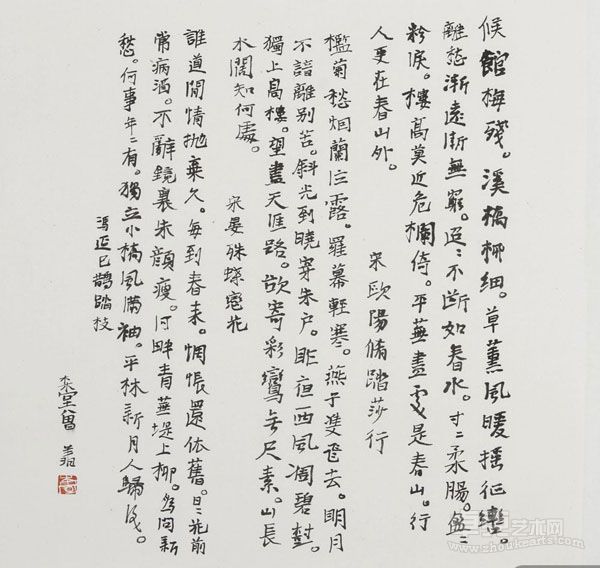 候館梅殘。溪橋柳細。草薰風暖搖征轡。
離愁漸遠漸無窮。迢〻不斷如春水。寸〻柔腸。盈〻
粉淚。樓高莫近危欄倚。平蕪盡處是春山。行
人更在春山外。
宋歐陽脩踏莎行
檻菊愁烟蘭泣露。羅幕輕寒。燕子雙飛去。明月
不諳離別苦。斜光到曉穿朱户。昨夜西風凋碧樹。
獨上高樓。望盡天涯路。欲寄彩鸞無尺素。山長
水闊知何處。
宋晏殊蝶戀花
誰道閒情抛棄久。每到春來。惆悵還依舊。日〻花前
常病酒。不辭鏡裏朱顏瘦。河畔青蕪堤上柳。爲問新
愁。何事年〻有。獨立小橋風滿袖。平林新月人歸後。
馮延巳鵲踏枝
艺术网
www.zhoukearts.com